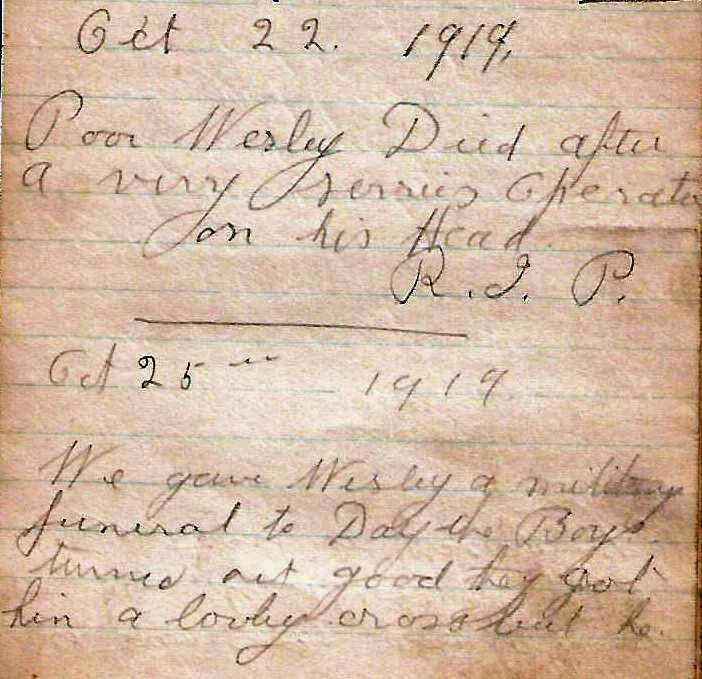 Oct 22. 1919.
Poor Wesley Died after
a very serries Operatio
on his Head.
R. I. P.
Oct 25 1919.
We gave Wesley a military
funeral to Day the Boys.
turned out good they got
him a lovly cross but he